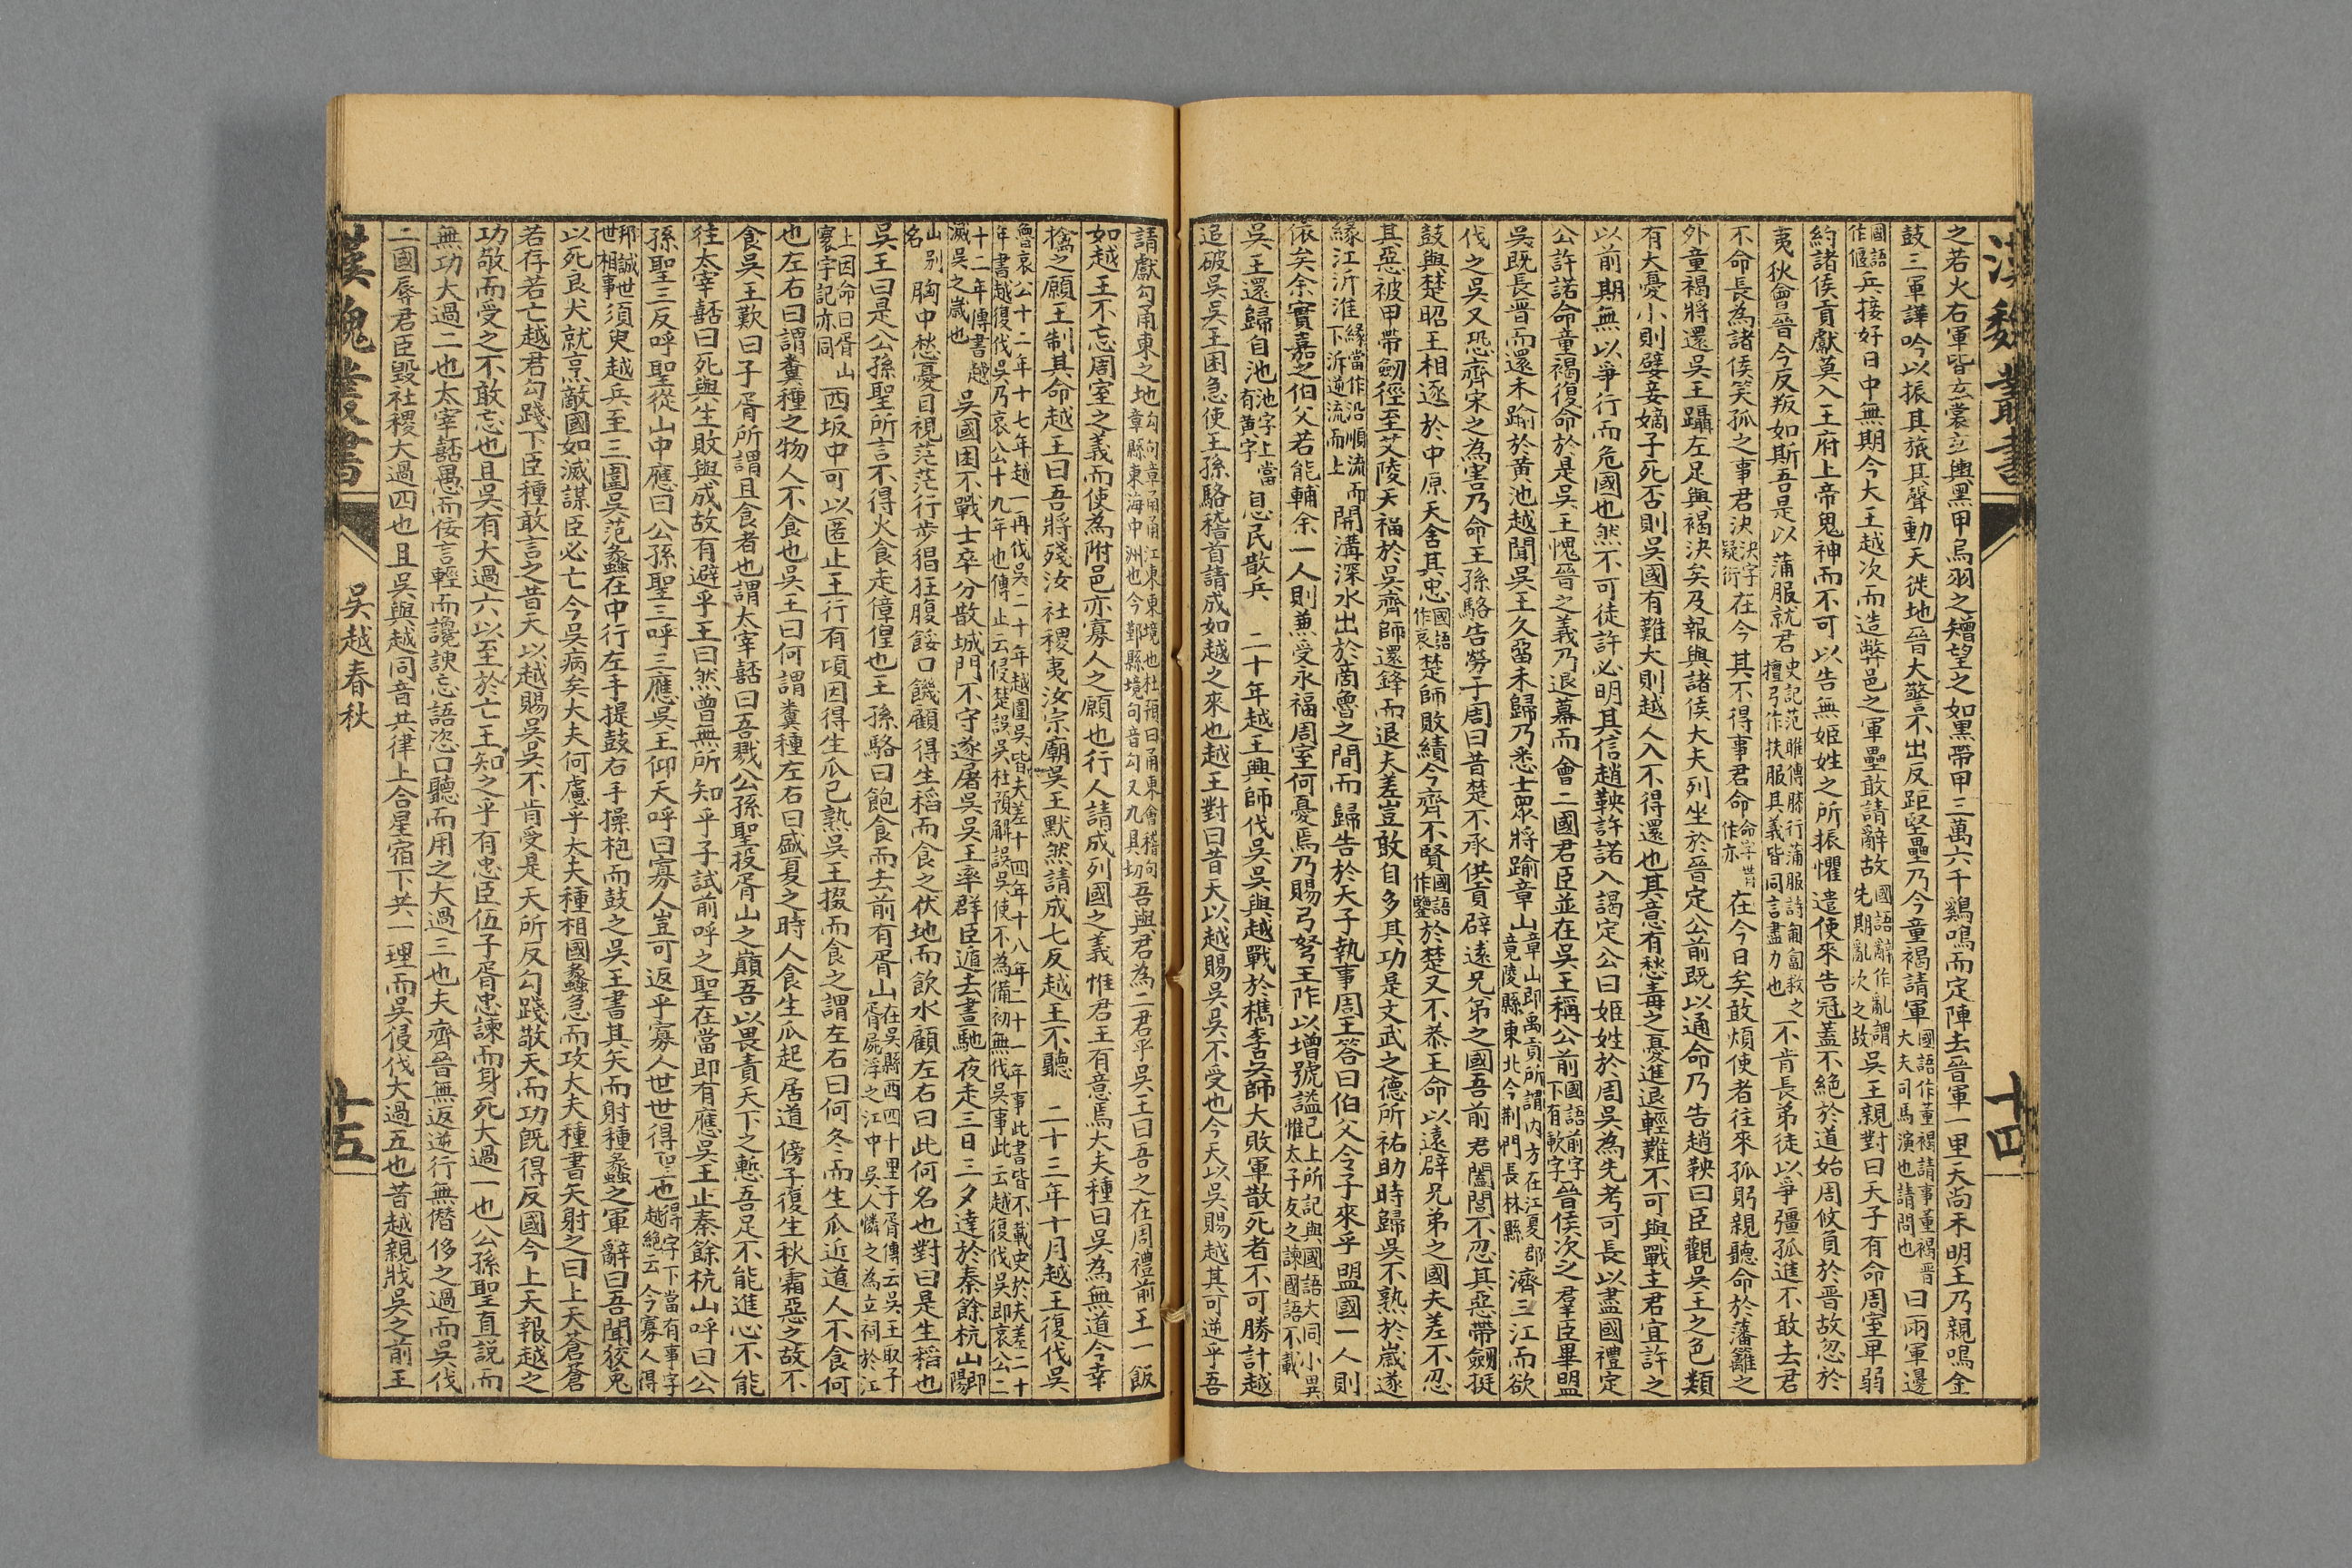 漢魏叢書
十四
之若火右軍皆玄裳玄輿黑甲烏羽之矰望之如黑帶甲三萬六千鷄鳴而定陣去晉軍一里天尚未明王乃親鳴金
鼓三軍譁吟以振其旅其聲動天徙地晉大驚不出反距堅壘乃令童褐請軍國語作董褐請事董褐晉大夫司馬演也請問也曰兩軍邊
國語作偃兵接好日中無期今大王越次而造弊邑之軍壘敢請辭故國語辭作亂謂先期亂次之故吳王親對曰天子有命周室卑弱
約諸侯貢獻莫入王府上帝鬼神而不可以告無姬姓之所振懼遣使來告冠蓋不絕於道始周攸負於晉故忽於
夷狄會晉今反叛如斯吾是以蒲服就君史記范雎傳膝行蒲服詩匍匐救之檀弓作扶服其義皆同言盡力也不肯長弟徒以爭彊孤進不敢去君
不命長為諸侯笑孤之事君決決字疑衍在今其不得事君命命字當作亦在今日矣敢煩使者往來孤躬親聽命於藩籬之
外童褐將還吳王躡左足與褐決矣及報與諸侯大夫列坐於晉定公前既以通命乃告趙鞅曰臣觀吳王之色類
有大憂小則嬖妾嫡子死否則吳國有難大則越人入不得還也其意有愁毒之憂進退輕難不可與戰主君宜許之
以前期無以爭行而危國也然不可徒許必明其信趙鞅許諾入謁定公曰姬姓於周吳為先考可長以盡國禮定
公許諾命童褐復命於是吳王愧晉之義乃退幕而會二國君臣並在吳王稱公前國語前字下有歃字晉侯次之羣臣畢盟
吳既長晉而還未踰於黃池越聞吳王久留未歸乃悉士眾將踰章山章山即禹貢所謂內方在江夏郡竟陵縣東北今荆門長林縣濟三江而欲
伐之吳又恐齊宋之為害乃命王孫駱告勞于周曰昔楚不承供貢辟遠兄弟之國吾前君闔閭不忍其惡帶劒挺
鼓與楚昭王相逐於中原天舍其忠國語作衷楚師敗績今齊不賢國語作鑒於楚又不恭王命以遠辟兄弟之國夫差不忍
其惡被甲帶劒徑至艾陵天福於吳齊師還鋒而退夫差豈敢自多其功是文武之德所祐助時歸吳不熟於歲遂
緣江泝淮緣當作沿順流而下泝逆流而上開溝深水出於商魯之間而歸告於天子執事周王答曰伯父令子來乎盟國一人則
依矣余實嘉之伯父若能輔余一人則兼受永福周室何憂焉乃賜弓弩王阼以增號謚已上所記與國語大同小異惟太子友之諫國語不載
吳王還歸自池池字上當有黃字息民散兵 二十年越王興師伐吳吳與越戰於檇李吳師大敗軍散死者不可勝計越
追破吳吳王困急使王孫駱稽首請成如越之來也越王對曰昔天以越賜吳吳不受也今天以吳賜越其可逆乎吾
請獻勾甬東之地勾向章甬甬江東東境也杜預曰甬東會稽句章縣東海中洲也今鄞縣境句音勾又九具切吾與君為二君乎吳王曰吾之在周禮前王一飯
如越王不忘周室之義而使為附邑亦寡人之願也行人請成列國之義惟君王有意焉大夫種曰吳為無道今幸
擒之願王制其命越王曰吾將殘汝社稷夷汝宗廟吳王默然請成七反越王不聽 二十三年十月越王復伐吳
魯哀公十二年十七年越一再伐吳二十年越圍吳皆夫差十四年十八年二十一年事此書皆不載史於夫差二十年書越復伐吳乃哀公十九年也傳止云侵楚誤吳杜預解誤吳使不為備初無伐吳事此云越復伐吳即哀公二
十二年傳書越滅吳之歲也吳國困不戰士卒分散城門不守遂屠吳吳王率群臣遁去晝馳夜走三日三夕達於秦餘杭山即陽
山别名胸中愁憂目視茫茫行步猖狂腹餒口饑顧得生稻而食之伏地而飲水顧左右曰此何名也對曰是生稻也
吳王曰是公孫聖所言不得火食走傽偟也王孫駱曰飽食而去前有胥山在吳縣西四十里子胥傳云吳王取子胥屍浮之江中吳人憐之為立祠於江
上因命曰胥山寰宇記亦同西坂中可以匿止王行有頃因得生瓜已熟吳王掇而食之謂左右曰何冬而生瓜近道人不食何
也左右曰謂糞種之物人不食也吳王曰何謂糞種左右曰盛夏之時人食生瓜起居道傍子復生秋霜惡之故不
食吳王歎曰子胥所謂且食者也謂太宰嚭曰吾戮公孫聖投胥山之巔吾以畏責天下之慙吾足不能進心不能
往太宰嚭曰死與生敗與成故有避乎王曰然曾無所知乎子試前呼之聖在當即有應吳王止秦餘杭山呼曰公
孫聖三反呼聖從山中應曰公孫聖三呼三應吳王仰天呼曰寡人豈可返乎寡人世世得聖也得字下當有事字越絕云今寡人得
邦誠世世相事須臾越兵至三圍吳范蠡在中行左手提鼓右手操枹而鼓之吳王書其矢而射種蠡之軍辭曰吾聞狡兔
以死良犬就烹敵國如滅謀臣必亡今吳病矣大夫何慮乎大夫種相國蠡急而攻大夫種書矢射之曰上天蒼蒼
若存若亡越君勾踐下臣種敢言之昔天以越賜吳吳不肯受是天所反勾踐敬天而功既得反國今上天報越之
功敬而受之不敢忘也且吳有大過六以至於亡王知之乎有忠臣伍子胥忠諫而身死大過一也公孫聖直說而
無功大過二也太宰嚭愚而佞言輕而讒諛妄語恣口聽而用之大過三也夫齊晉無返逆行無僭侈之過而吳伐
二國辱君臣毀社稷大過四也且吳與越同音共律上合星宿下共一理而吳侵伐大過五也昔越親戕吳之前王
漢魏叢書
吳越春秋
十五